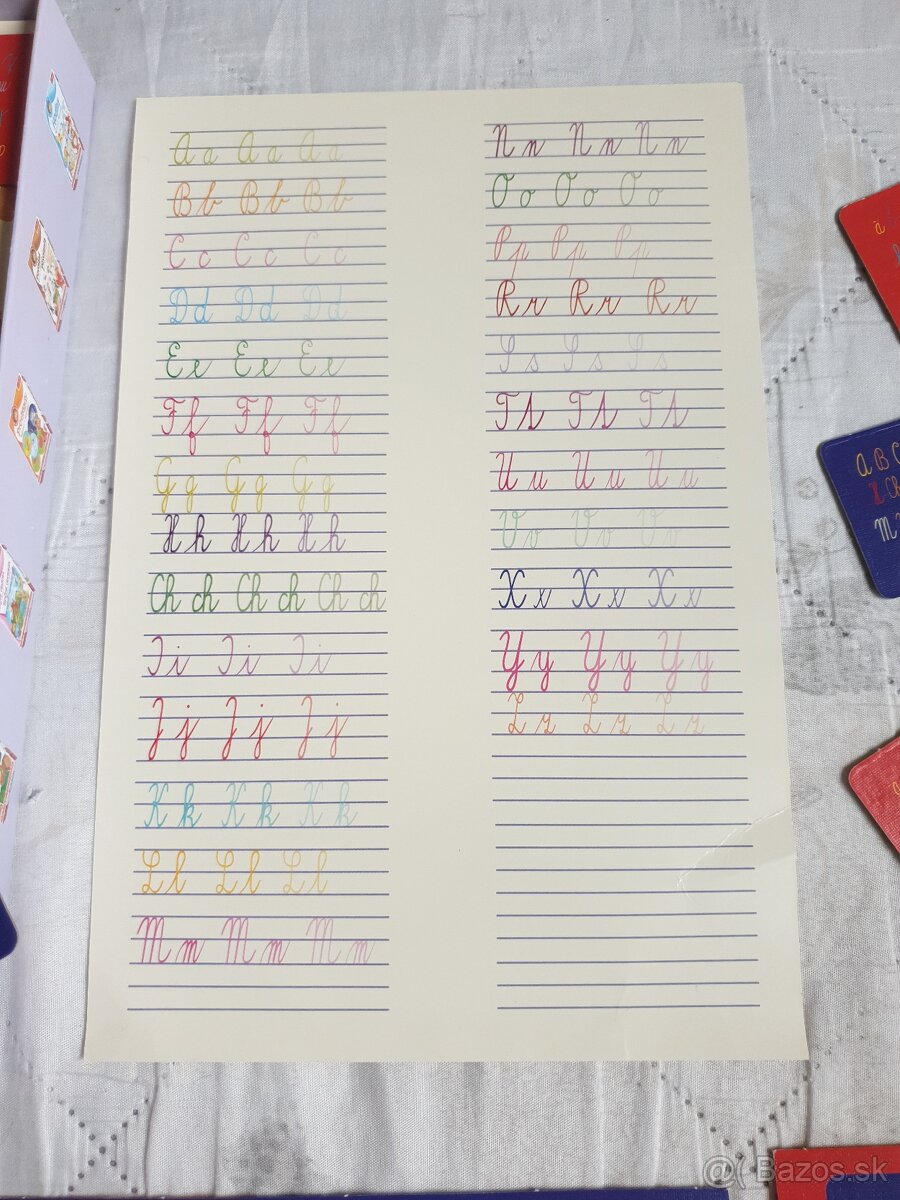 A a A a A a
B b B b B b
C c C c C c
D d D d D d
E e E e E e
F f F f F f
G g G g G g
H h H h H h
Ch ch Ch ch Ch ch
I i I i I i
J j J j J j
K k K k K k
L l L l L l
M m M m M m
N n N n N n
O o O o O o
P p P p P p
R r R r R r
S s S s S s
T t T t T t
U u U u U u
V v V v V v
X x X x X x
Y y Y y Y y
Z z Z z Z z
A B C
Bazos.sk